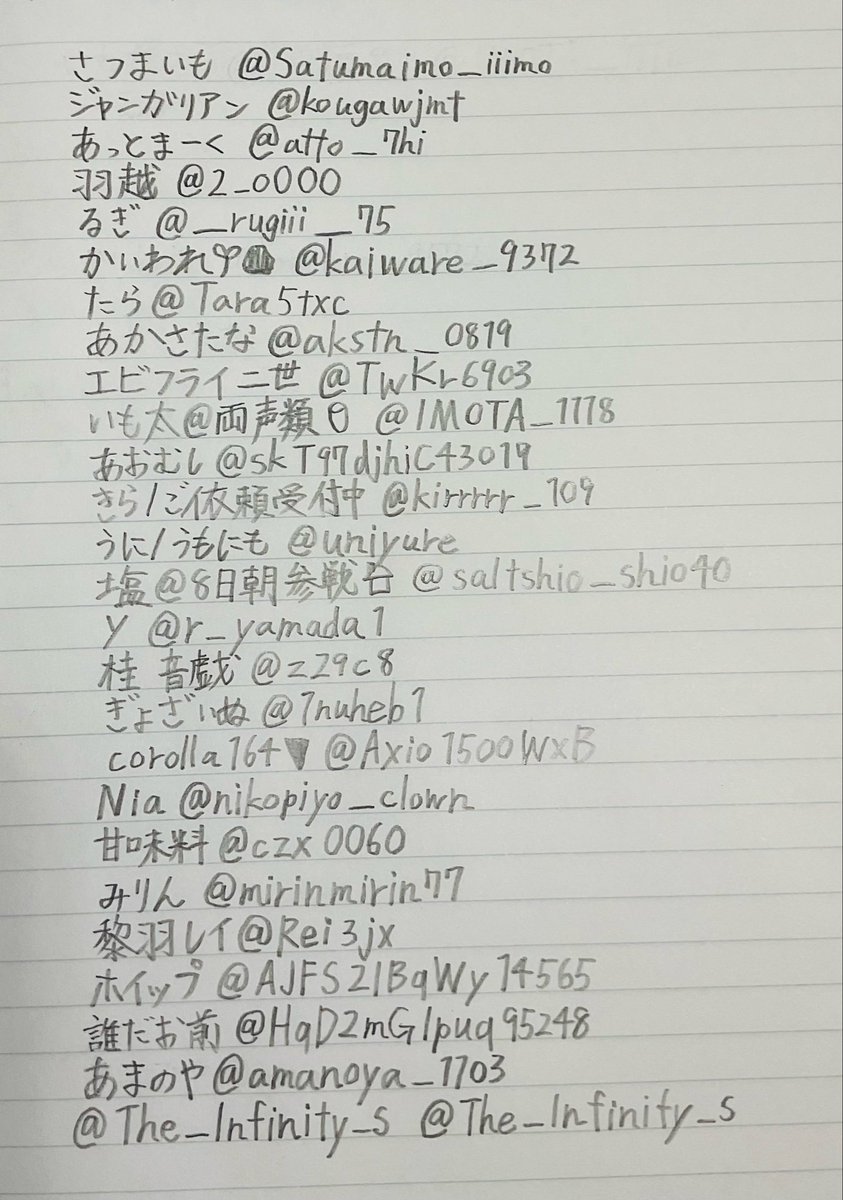 さつまいも @Satumaimo_iiimo
ジャンガリアン @kougawjmt
あっとまーく @atto_7hi
羽越 @2_0000
るぎ @__rugiii__75
かいわれ🌱 @kaiware_9372
たら@Tara5txc
あかさたな@akstn_0819
エビフライ二世 @TwKr6903
いも太@両声類 @IMOTA_1178
あおむし@skT97djhiC43019
きら/ご依頼受付中 @kirrrrr_109
うに/うもにも @uniyure
塩@8日朝参戦 @saltshio_shio40
Y @r_yamada1
桂 音戯 @z29c8
ぎょざいぬ @1nuheb1
corolla164 @Axio1500WxB
Nia @nikopiyo_clown
甘味料 @czx0060
みりん @mirinmirin77
黎羽レイ@Rei3jx
ホイップ @AJFS21BqWy14565
誰だお前 @HqD2mG1puq95248
あまのや@amanoya_1703
@The_Infinity_s @The_Infinity_s